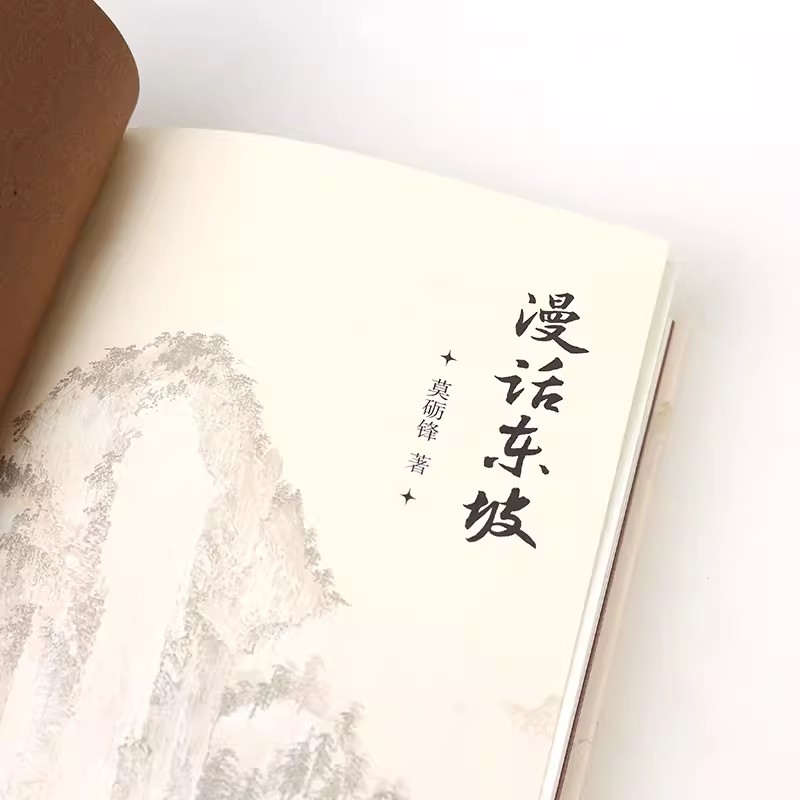 漫话东坡
莫砺锋 著